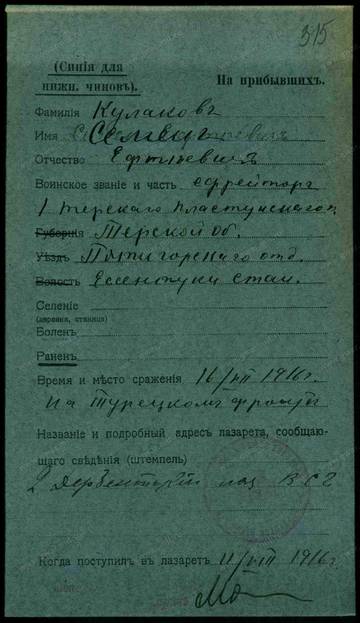 315
(Синія для
нижн. чиновъ).
На прибывшихъ.
Фамилія Кулаковъ
Имя Семенъ
Отчество
Воинское званіе и часть ефрейторъ
1 Терскаго Пластунскаго
Губернія Терской Об.
Уѣздъ Пятигорскаго отд.
Волость Ессентуки стан.
Селеніе
(деревня, станица)
Боленъ
Раненъ
Время и мѣсто сраженія 16/VII 1916 г.
На Турецкомъ фронтѣ
Названіе и подробный адресъ лазарета, сообщаю-
щаго свѣдѣнія (штемпель)
2 Дербентскій лаз В С Г
Когда поступилъ въ лазаретъ 11/VIII 1916 г.